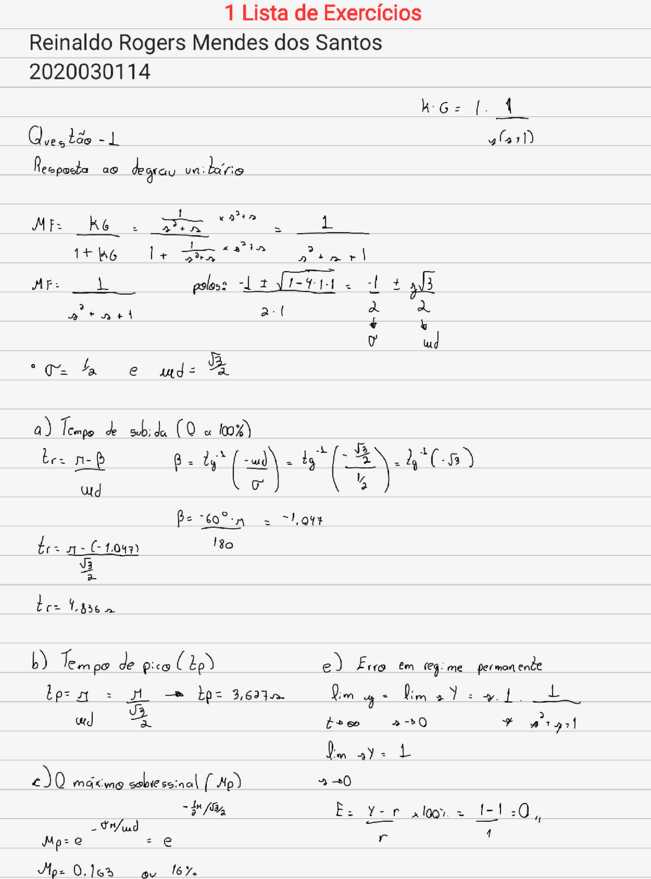 1 Lista de Exercícios
Reinaldo Rogers Mendes dos Santos
2020030114
K·G = 1 · 1/(s(s+1))
Questão - 1
Resposta ao degrau unitário
MF = KG/(1 + KG) = (1/(s²+s) × s²+s)/(1 + 1/(s²+s) × s²+s) = 1/(s² + s + 1)
MF = 1/(s² + s + 1) polos: (-1 ± √(1-4·1·1))/(2·1) = -1/2 ± j√3/2
↓ ↓
σ ωd
• σ = 1/2 e ωd = √3/2
a) Tempo de subida (0 a 100%)
tr = (π - β)/ωd β = tg⁻¹(-ωd/σ) = tg⁻¹(-(√3/2)/(1/2)) = tg⁻¹(-√3)
β = (-60° · π)/180 = -1,047
tr = (π - (-1.047))/(√3/2)
tr = 4,836 s
b) Tempo de pico (tp)
tp = π/ωd = π/(√3/2) → tp = 3,627 s
c) O máximo sobressinal (Mp)
Mp = e^(-σπ/ωd) = e^(-½π/√3/2)
Mp = 0.163 ou 16%
e) Erro em regime permanente
lim y = lim sY = s · 1/s · 1/(s² + s + 1)
t→∞ s→0
lim sY = 1
s→0
E = (Y - r)/r × 100% = (1-1)/1 = 0,,